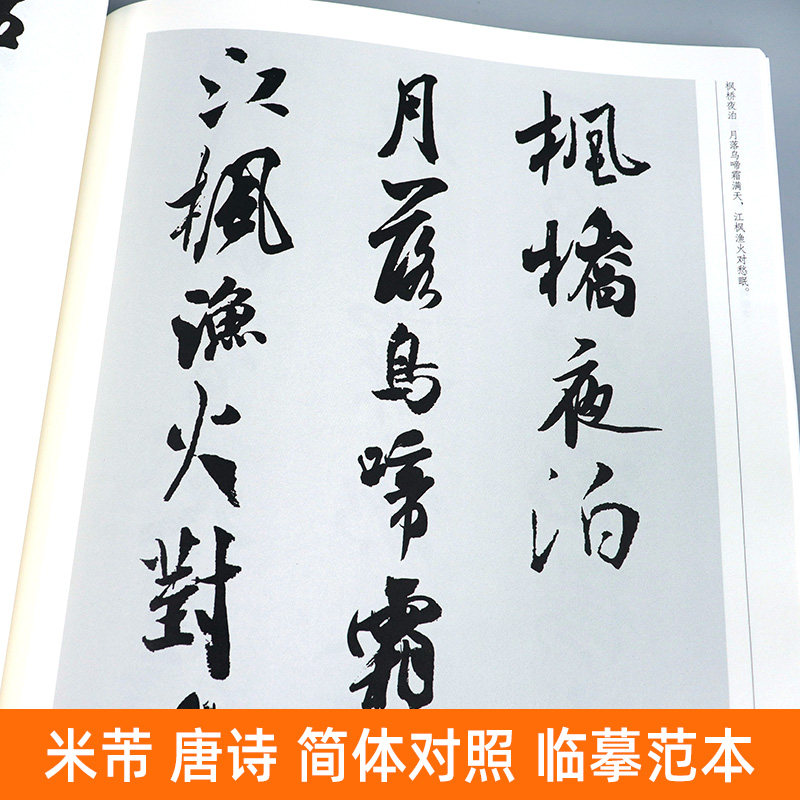 枫桥夜泊 月落乌啼霜满天，江枫渔火对愁眠。
楓橋夜泊
月落烏啼霜
江楓漁火對
米芾 唐诗 简体对照 临摹范本